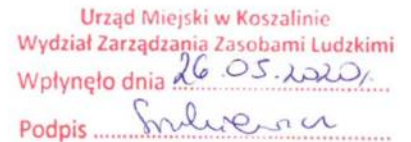 Urząd Miejski w Koszalinie
Wydział Zarządzania Zasobami Ludzkimi
Wpłynęło dnia 26.05.2020r.
Podpis